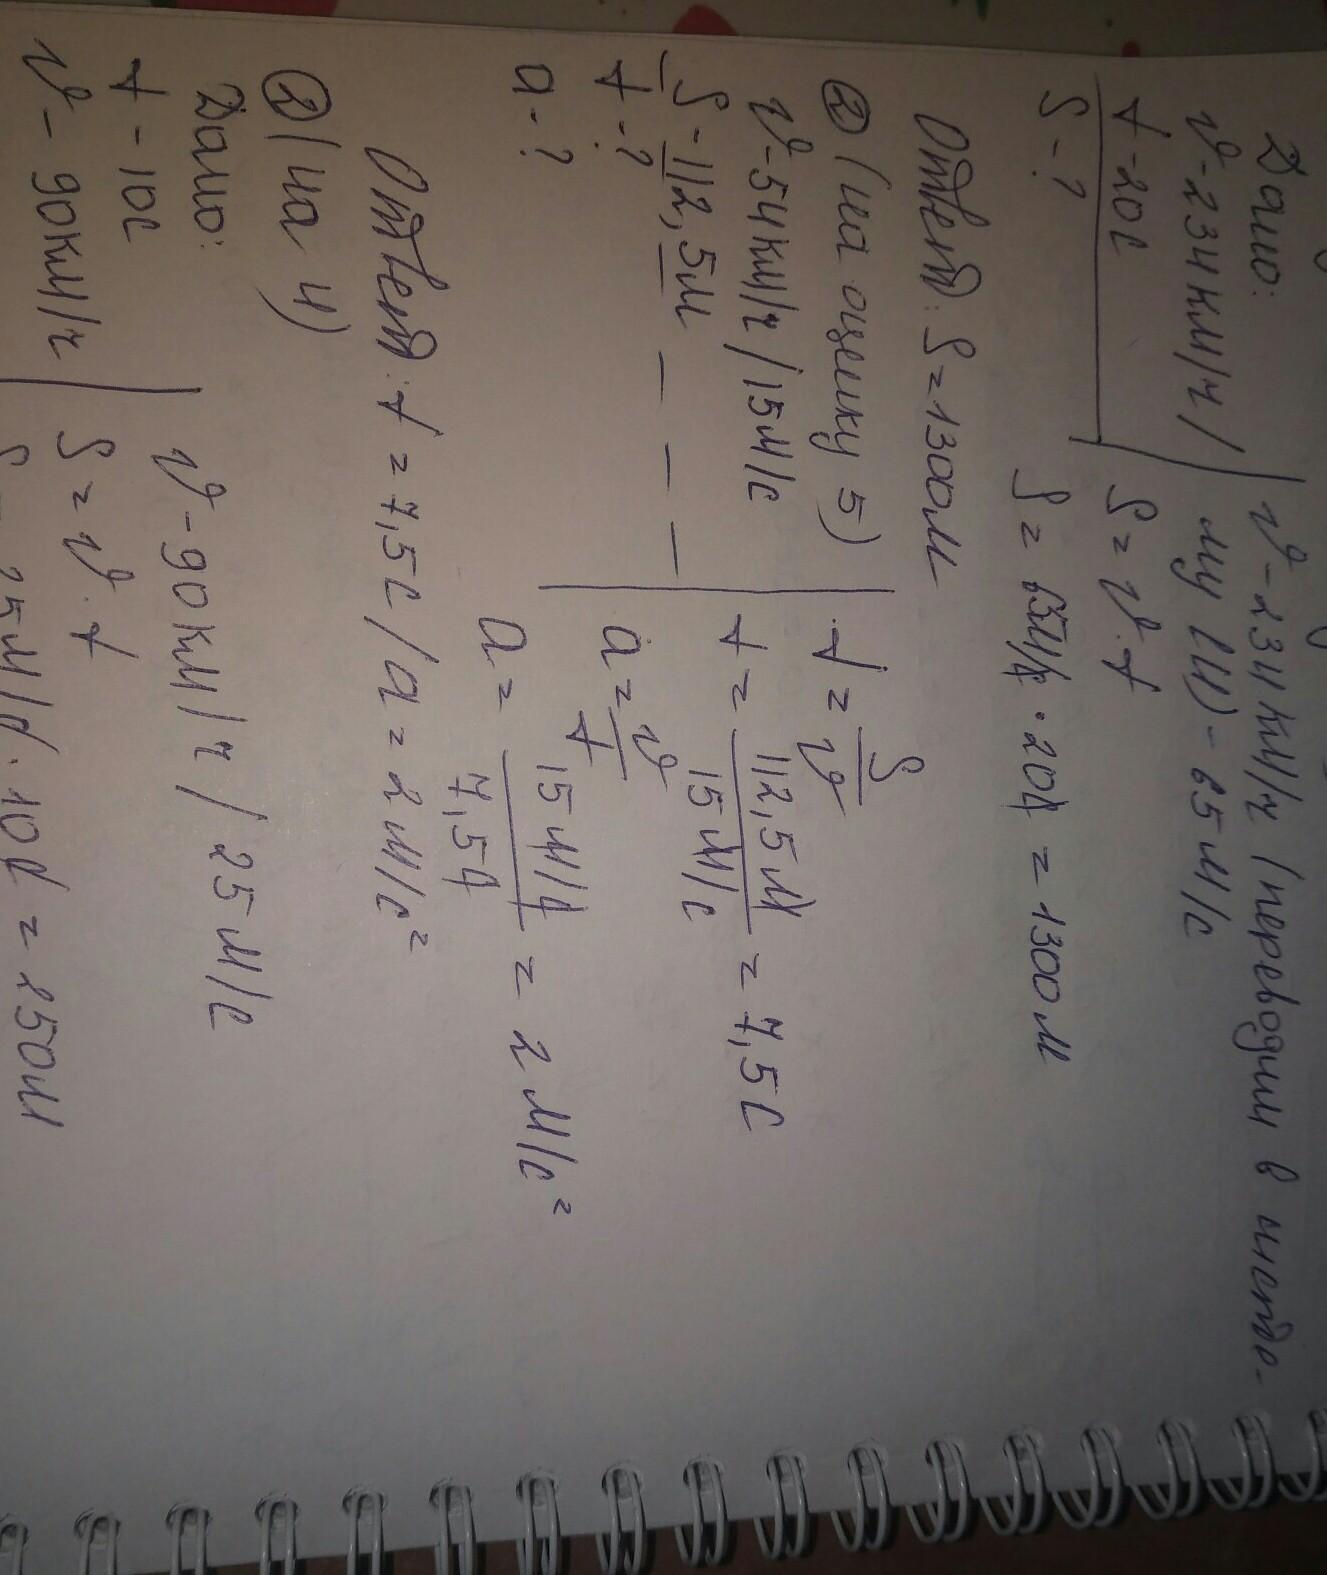 Дано:
𝜗-234км/ч/
t-20с
S-?
𝜗-234км/ч (переводим в систе-
му СИ)-65м/с
S=𝜗·t
S=65м/с·20с=1300м
Ответ: S=1300м
② (на оценку 5)
𝜗-54км/ч/15м/с
S-112,5м
t-?
a-?
t=S/𝜗
t=112,5м/15м/с=7,5с
a=𝜗/t
a=15м/с/7,5с=2м/с²
Ответ: t=7,5с/a=2м/с²
②(на 4)
Дано:
t-10с
𝜗-90км/ч
𝜗-90км/ч/25м/с
S=𝜗·t
25м/с·10с=250м